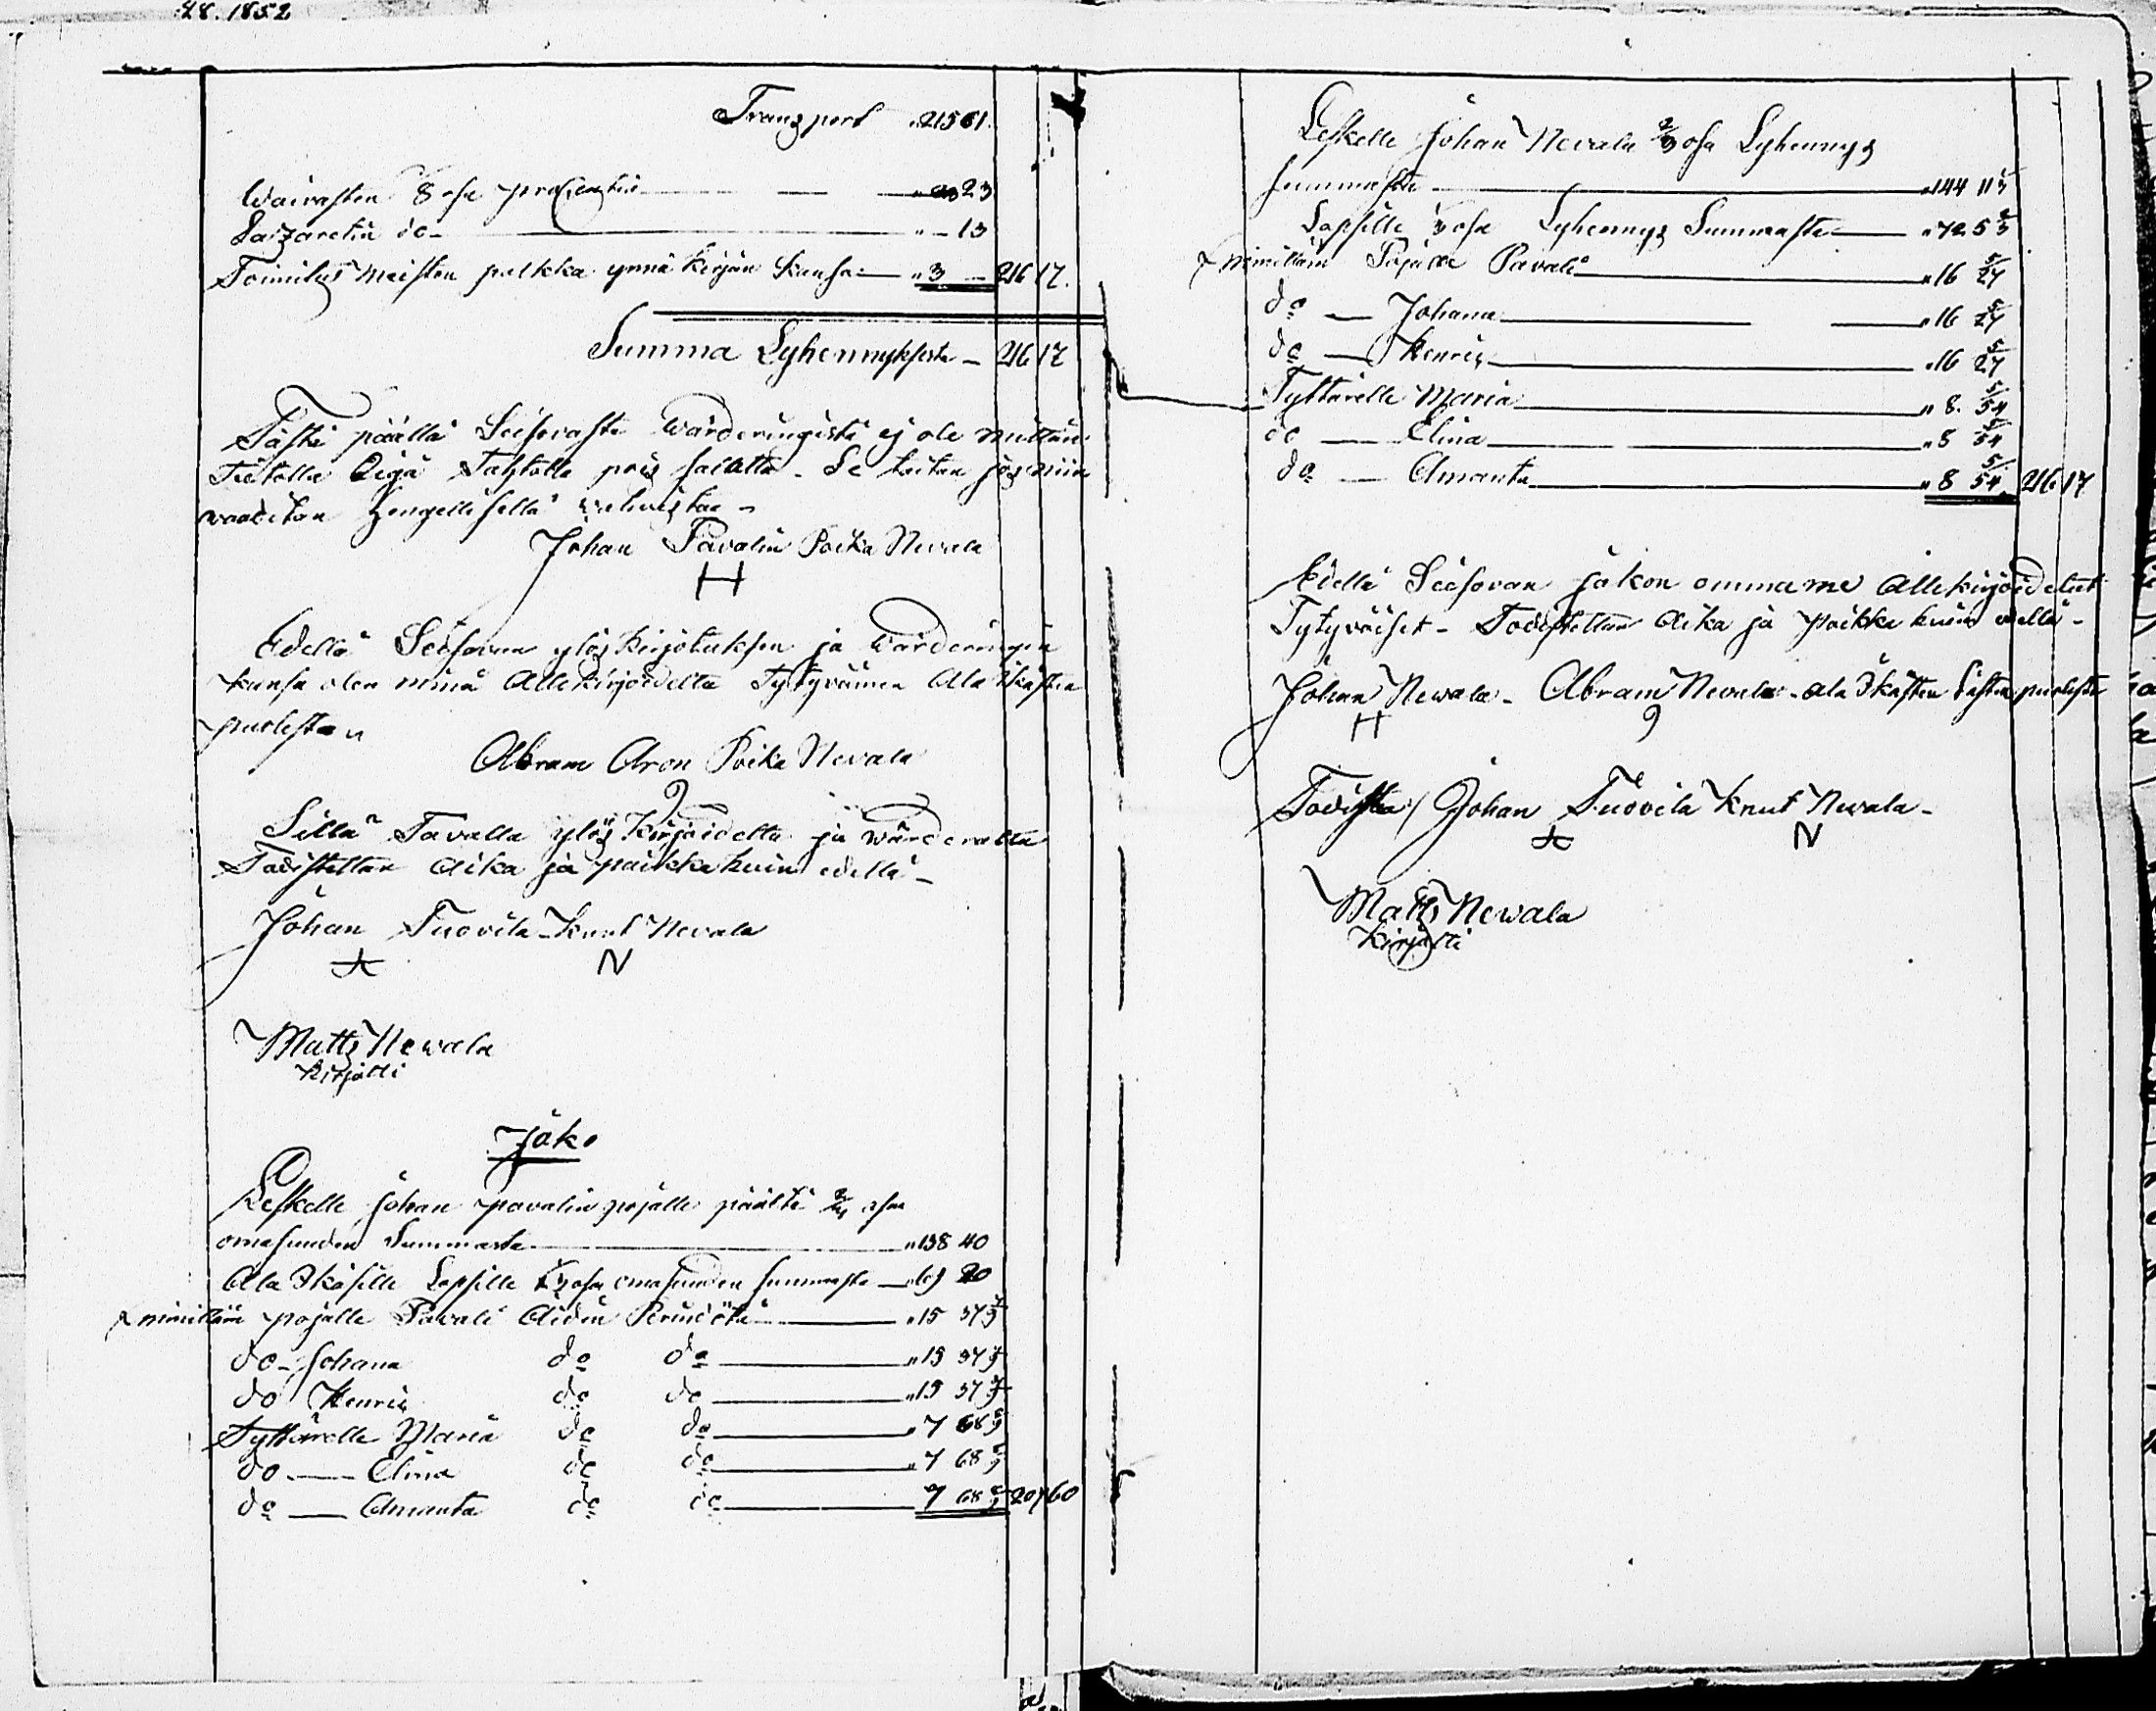 28. 1852
Transport " 215 61.
Waivasten 8 osa prosentin " 23
Lazaretin do " – 13
Toimitus Meisten palkka ynnä kirjan kansa " 3 – 216 17.
Summa Lyhennyksestä – 216 17
Tästä päällä Seisovasta Wärderingistä ej ole mittän
Tietolla Eigä Tahtolla pois salattu – Se taitan jos niin
vaaditan Hengellisellä valwistaa –
Johan Pavalin Poika Nevala
H
Edellä Seisovan ylös Kirjotuksen ja Wärderingin
kansa olen minä Allekirjoidettu Tytyväinen Ala Ikästen
puolesta "
Abram Aron Poika Nevala
Sillä Tavalla ylös Kirjoidettu ja wärderattu
Todistettan Aika ja paikka kuin edellä –
Johan Tuovila – Knut Nevala
N
Matts Newala
Kirjätti
Jako
Leskelle Johan pavalin pojalle päältä 2/3 osa
omasuuden Summasta " 138 40
Ala Ikäsille Lapsille 1/3 osa omasuuden summasta " 69 20
nimittäin pojalle Pavali Äidin Perindötä " 15 37 7/9
do – Johana do do " 15 37 7/9
do Henric do do " 15 37 7/9
Tyttärelle Maria do do " 7 68 8/9
do — Elina do do " 7 68 8/9
do — Amanta do do 7 68 8/9 207 60
Leskelle Johan Nevala 2/3 osa Lyhennys
summasta " 144 11 1/3
Lapsille 1/3 osa Lyhennys Summasta " 72 5 2/3
nimittäin Pojalle Pavali " 16 5/27
do — Johana " 16 5/27
do — Henric " 16 5/27
Tyttärelle Maria " 8. 5/54
do — Elina " 8 5/54
do — Amanta " 8 5/54 216 17
Edellä Seisovan jakon ommame Allekirjoidetut
Tytyväiset – Todistettan Aika ja paikka kuin edellä –
Johan Newala – Abram Nevala – ala Ikästen Lasten puolesta
H
Todistaa / Johan Tuovila Knut Newala –
N
Matts Newala
Kirjätti